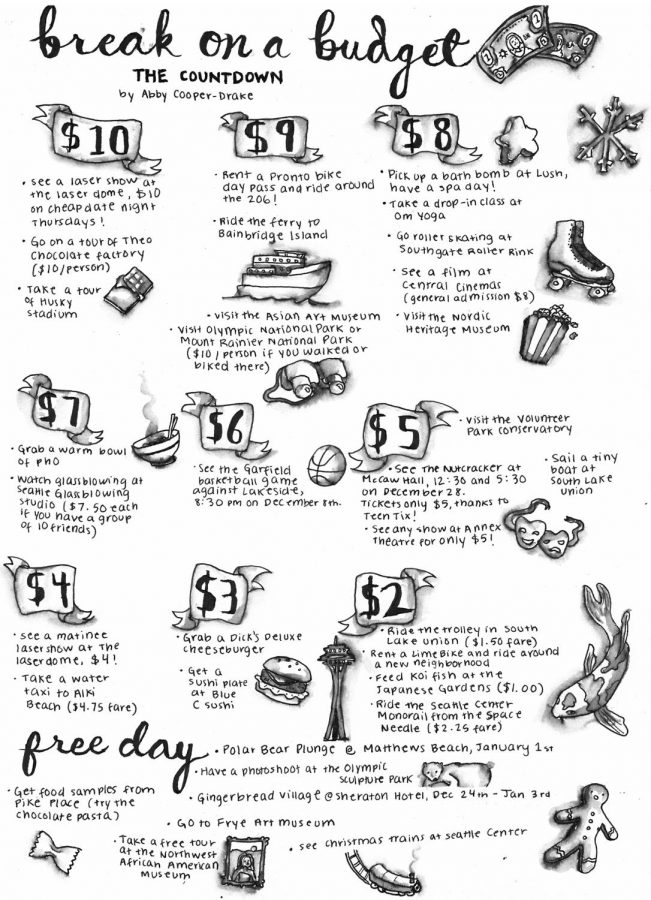 break on a budget
THE COUNTDOWN
by Abby Cooper-Drake
$10
• see a laser show at
the laser dome, $10
on cheap date night
Thursdays!
• Go on a tour of Theo
chocolate factory
($10/person)
• Take a tour
of Husky
stadium
$9
• Rent a Pronto bike
day pass and ride around
the 206!
• Ride the ferry to
Bainbridge Island
• visit the Asian Art Museum
• Visit Olympic National Park or
Mount Rainier National Park
($10/person if you walked or
biked there)
$8
• Pick up a bath bomb at Lush,
have a spa day!
• Take a drop-in class at
om Yoga
Go roller skating at
Southgate Roller Rink
see a film at
Central Cinemas
(general admission $8)
• Visit the Nordic
Heritage Museum
$7
• Grab a warm bowl
of pho
• Watch glassblowing at
Seattle Glassblowing
studio ($7.50 each
if you have a group
of 10 friends)
$6
• See the Garfield
basketball game
against Lakeside,
8:30 pm on December 8th.
$5
• visit the Volunteer
Park conservatory
• Sail a tiny
boat at
South Lake
Union
• See the Nutcracker at
McCaw Hall, 12:30 and 5:30
on December 28.
Tickets only $5, thanks to
Teen Tix!
• See any show at Annex
Theatre for only $5!
$4
• see a matinee
lasershow at the
laserdome, $4!
• Take a water
taxi to Alki
Beach ($4.75 fare)
$3
• Grab a Dick's Deluxe
cheeseburger
• Get a
sushi plate
at Blue
C sushi
$2
• Ride the trolley in South
Lake Union ($1.50 fare)
• Rent a LimeBike and ride around
a new neighborhood
• Feed koi fish at the
Japanese Gardens ($1.00)
• Ride the Seattle Center
Monorail from the Space
Needle ($2.25 fare)
free day
• Polar Bear Plunge @ Matthews Beach, January 1st
• Have a photoshoot at the Olympic
sculpture Park
• Gingerbread Village @ Sheraton Hotel, Dec 24th - Jan 3rd
• Get food samples from
Pike Place (try the
chocolate pasta)
• Go to Frye Art museum
• Take a free tour
at the Northwest
African American
Museum
• see christmas trains at seattle Center